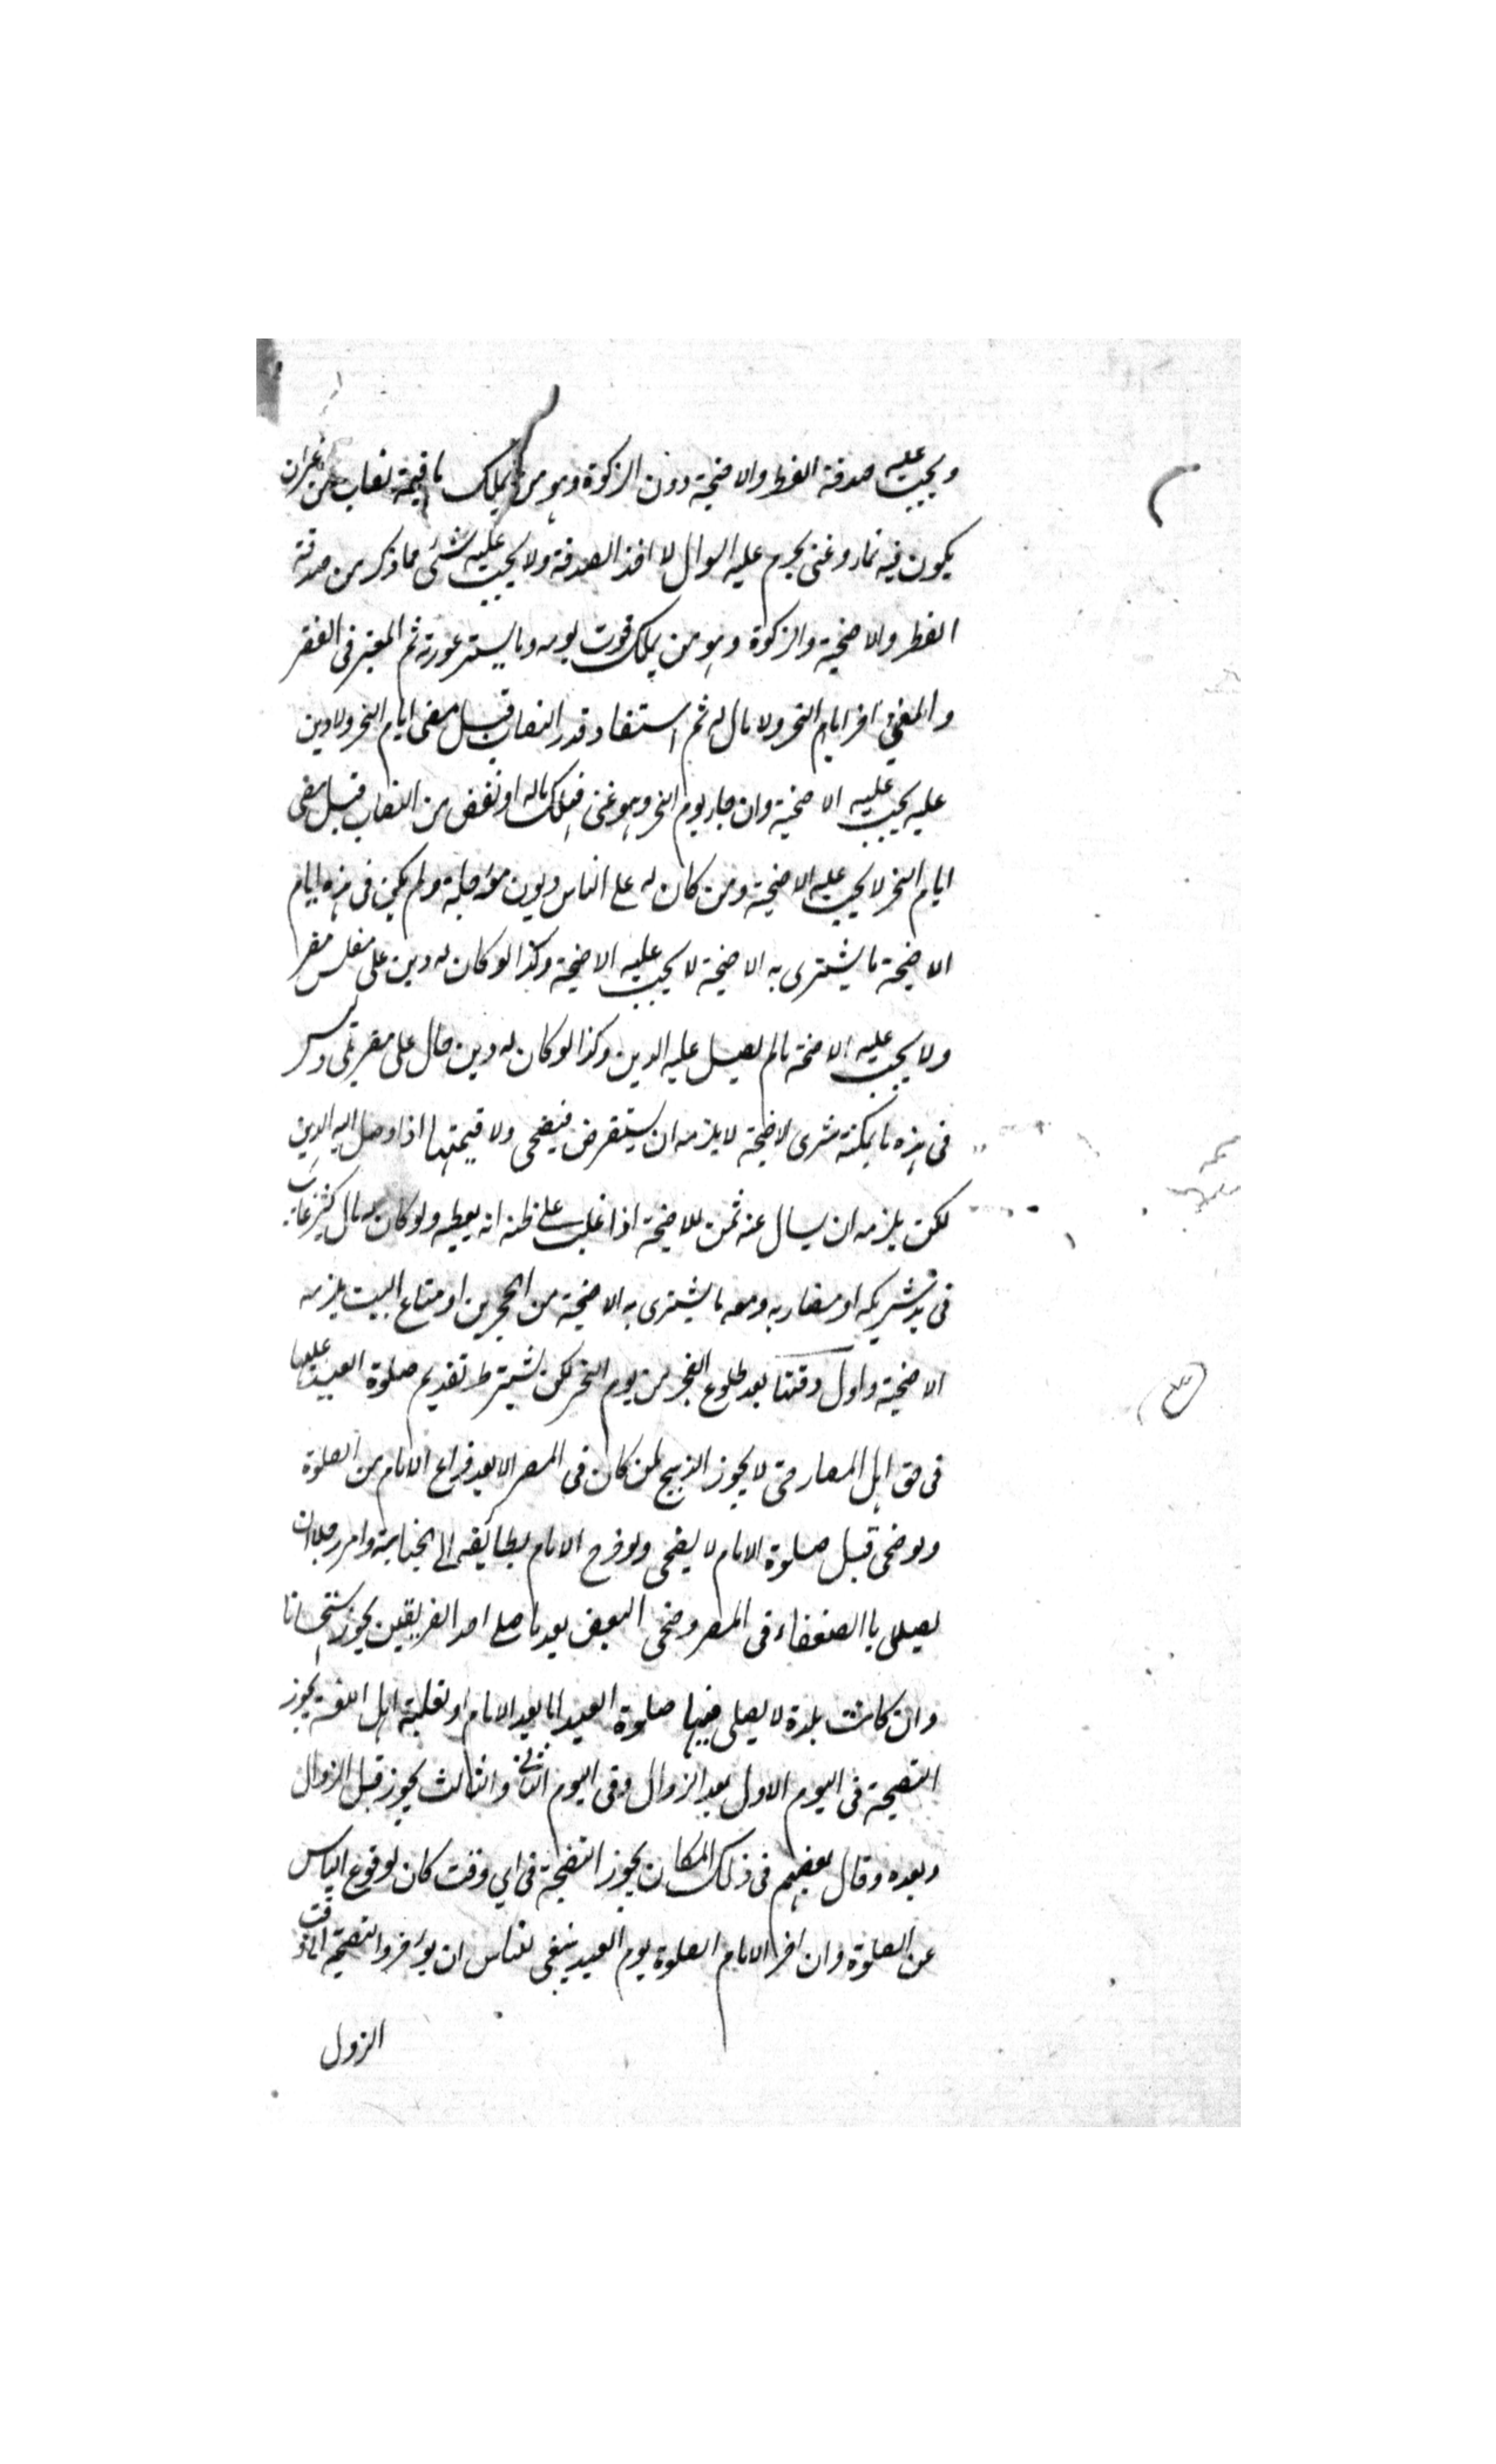 ويجب عليه صدقة الفطر والاضحية دون الزكوة وهو من يملك ما قيمة نصاب من غير ان
يكون فيه نماء وغنى يحرم عليه السوال لا اخذ الصدقة ولا يجب عليه شئ مما ذكر من صدقة
الفطر والاضحية والزكوة وهو من يملك قوت يومه وما يستر عورته ثم المعتبر فى الفقر
والغنى اخر ايام النحر ولا مال له ثم استفاد قدر النصاب قبل مضى ايام النحر ولا دين
عليه يجب عليه الاضحية وان جاء يوم النحر وهو غنى فهلك ماله او نقص من النصاب قبل مضى
ايام النحر لا يجب عليه الاضحية ومن كان له على الناس ديون مؤجلة ولم يكن فى هذه ايام
الاضحية ما يشترى به الاضحية لا يجب عليه الاضحية وكذا لو كان له دين على مفلس مقر
ولا يجب عليه الاضحة مالم يصل عليه الدين وكذا لو كان له دين حال على مقر ملى وليس
فى يده ما يمكنه شرى الاضحية لا يلزمه ان يستقرض فيضحى ولا قيمتها اذا وصل اليه الدين
لكن يلزمه ان يسال عنه ثمن للاضحية اذا غلب على ظنه انه يعطيه ولو كان له مال كثير غائب
فى يد شريكه او مضاربه ومعه ما يشترى به الاضحية من الحجرين او متاع البيت يلزمه
الاضحية واول وقتها بعد طلوع الفجر من يوم النحر لكن يشترط تقديم صلوة العيد عليها
فى حق اهل المصار حتى لا يجوز الذبح لمن كان فى المصر الا بعد فراغ الامام من الصلوة
ولو ضحى قبل صلوة الامام لا يضحى ولو خرج الامام بطائفة الى الجبانة وامر رجلا ان
يصلى باالضعفاء فى المصر وضحى البعض بعد ما صلى احد الفريقين يجوز استحسانا
وان كانت بلدة لا يصلى فيها صلوة العيد اما بعد الامام او لغلبة اهل الفتنة يجوز
التضحية فى اليوم الاول بعد الزوال وفى اليوم الثانى والثالث يجوز قبل الزوال
وبعده وقال بعضهم فى ذلك المكان يجوز التضحية فى اي وقت كان لوقوع الياس
عن الصلوة وان اخر الامام الصلوة يوم العيد ينبغى للناس ان يؤخروا التضحية الى وقت
الزول